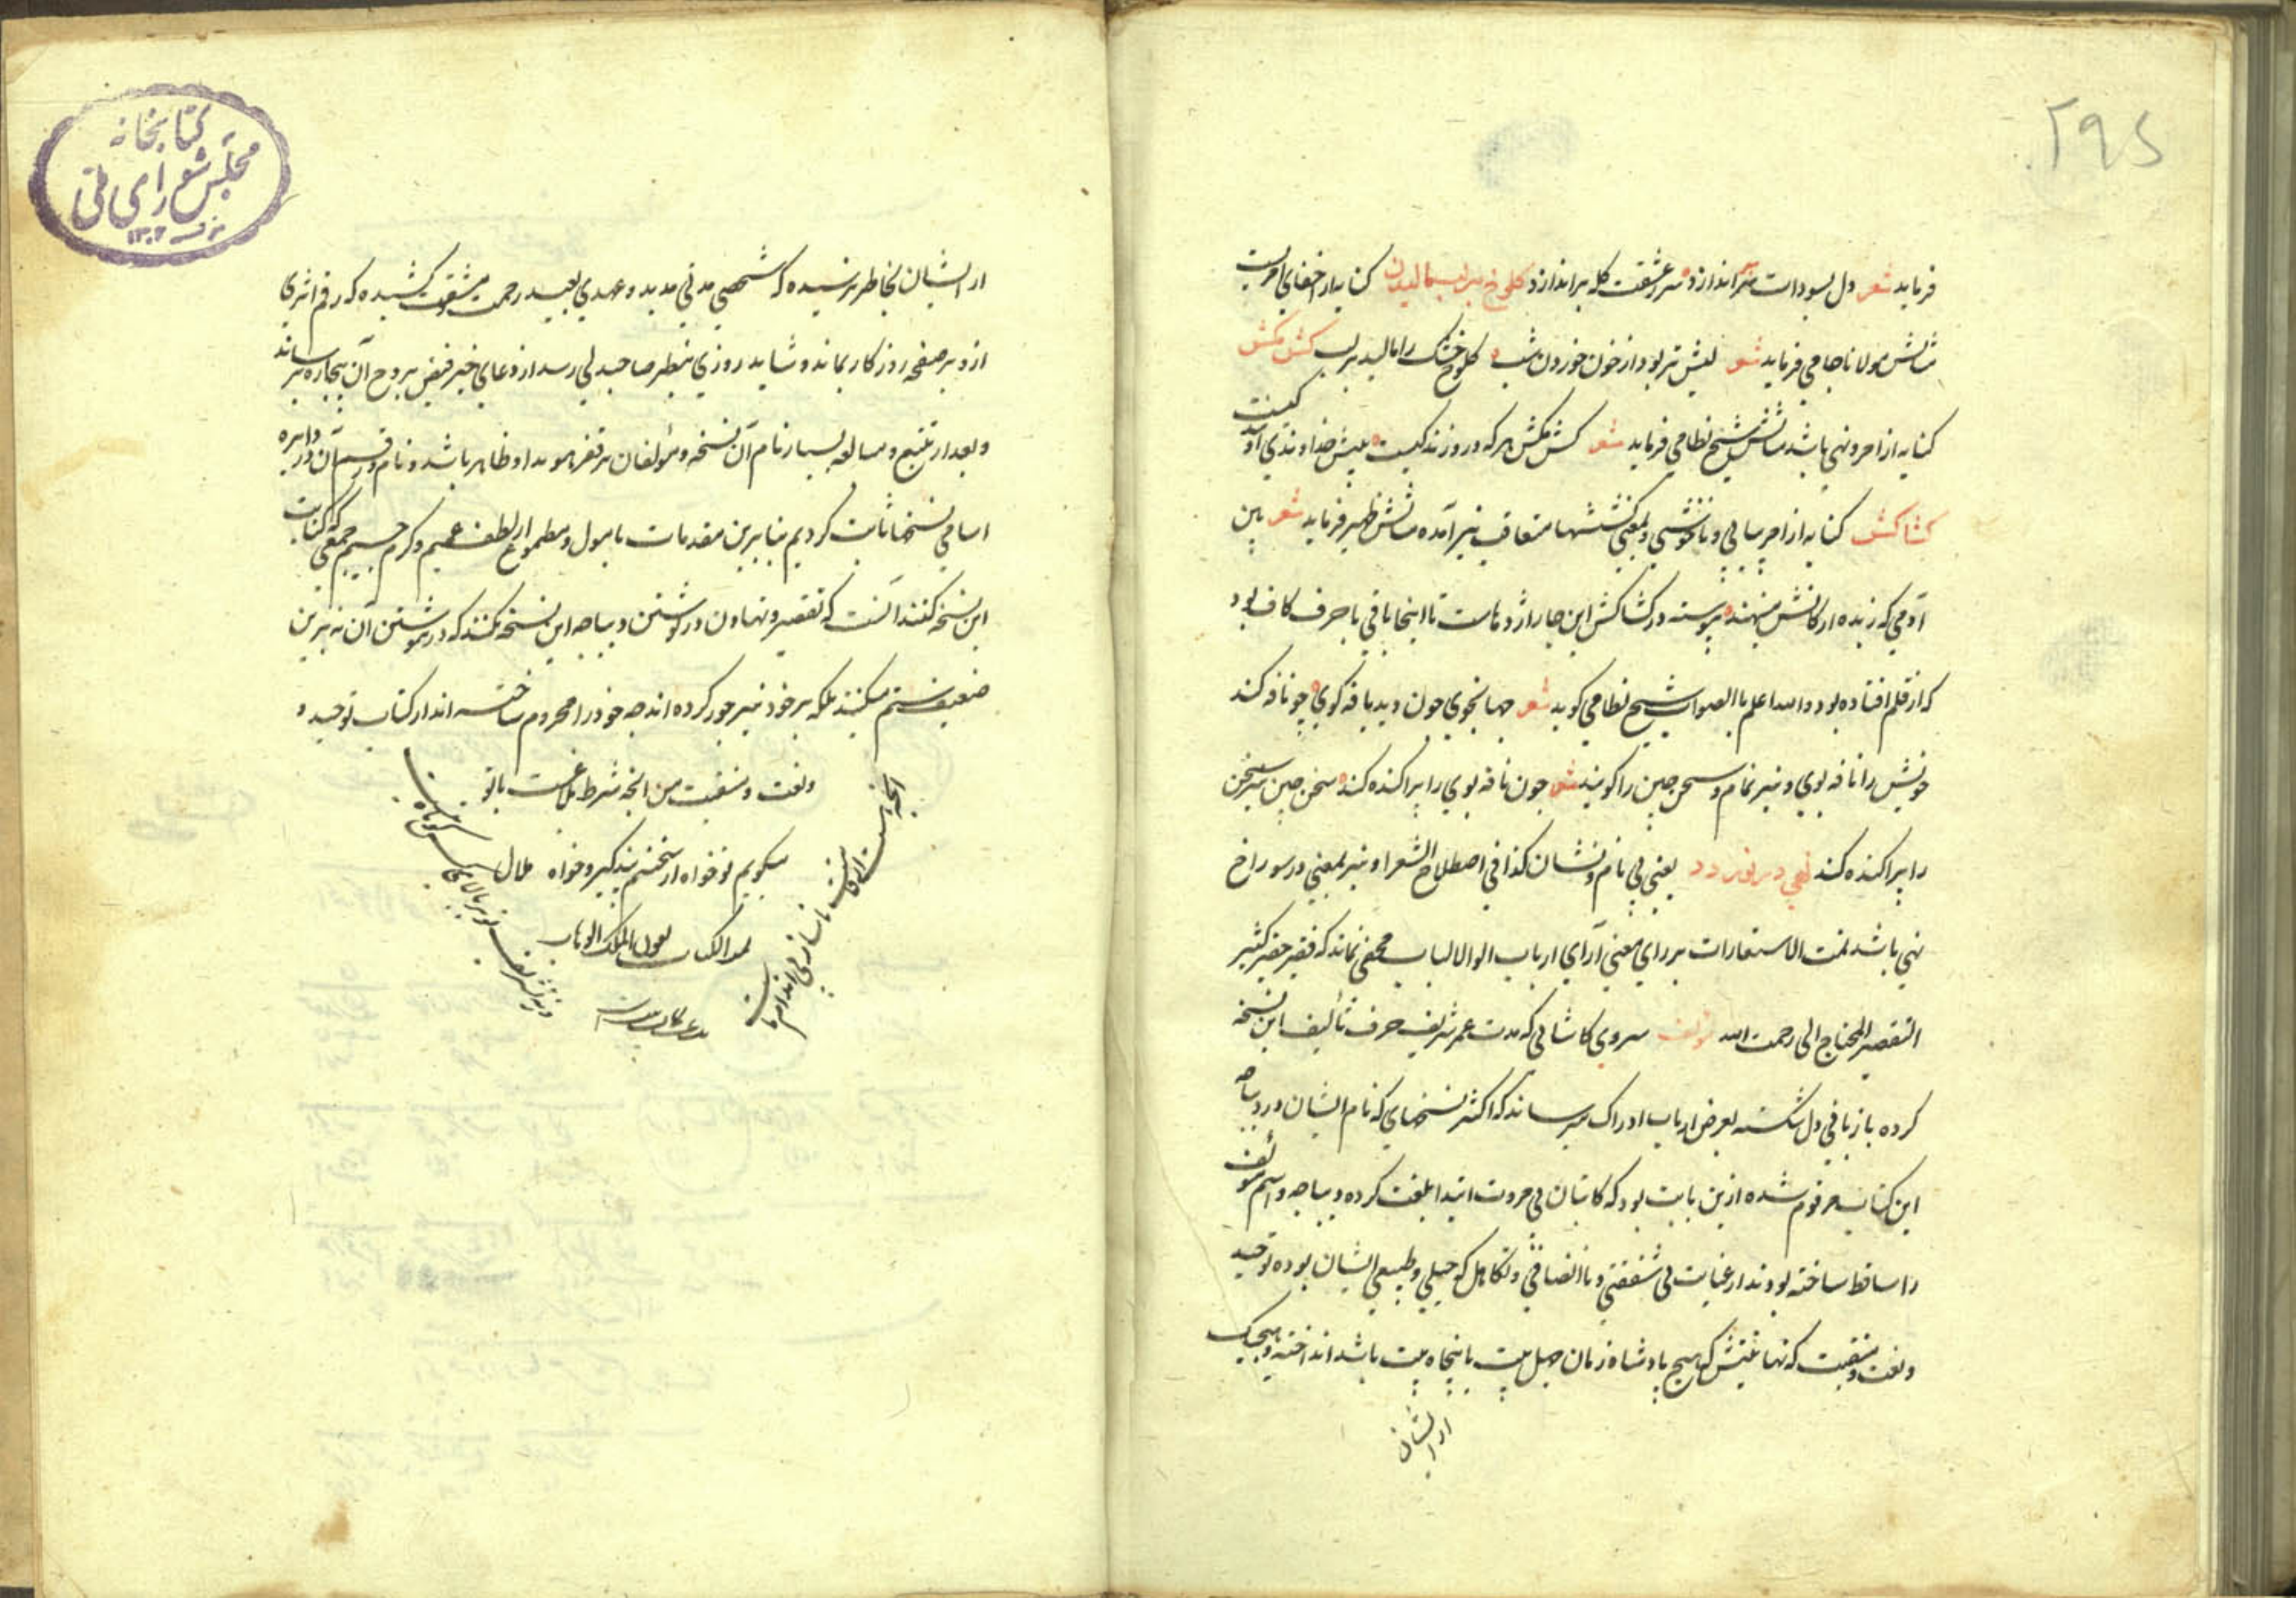 ۲۹۵
فرماید شعر دل بسودات سر اندازد سر ز عشقت کله براندازد کلوخ بر لب مالیدن کنایه از اخفای امریست
مثالش مولانا جامی فرماید شعر لبش تر بود از خون خوردن شب کلوخ خشک را مالید بر لب کش مکش
کنایه از امر و نهی باشد مثالش شیخ نظامی فرماید شعر کش مکش هر که درو زندگیست پیش خداوندی او بندگیست
کشاکش کنایه از امر مالی و ناخوشی و بمعنی کششها متعاقب نیز آمده مثالش ظهیر فرماید شعر باین
آدمی که زبده ارکانش مینهند پیوسته در کشاکش این چار اژدهاست تا اینجا باقی با حرف کاف بود
که از قلم افتاده بود والله اعلم باالصواب شیخ نظامی گوید شعر جهانجوی چون دید یافه گوی چو نافه کند
خویش را نافه بوی و نیز نمام و سخن چین را گویند شعر چون نافه بوی را پراکنده کند سخن چین نیز سخن
را پراکنده کند یعنی بی نام و نشان کذا فی اصطلاح الشعرا و نیز بمعنی در سوراخ
نهی باشد تمت الاستعارات بر رای معنی آرای ارباب الوالالباب مخفی نماند که فقیر حقیر کثیر
التقصیر المحتاج الی رحمت الله مؤلف سروری کاشانی که مدت عمر شریف صرف تالیف این نسخه
کرده باز بافی دل شکسته بعرض ارباب ادراک میرساند که اکثر نسخهای که نام ایشان در دیباچه
این کتاب مرقوم شده ازین بابت بود که کاتبان بی مروت ابتدا بلغت کرده دیباچه و اسم مؤلف
را ساقط ساخته بودند از غایت بی شفقتی و ناانصافی و تکاهل که جبلی و طبیعی ایشان بوده توحید
و نعت و منقبت که نهایتش که هیچ پادشاه زمان چهل بیت یا پنجاه بیت باشد انداخته و هیچیک
از ایشان
کتابخانه
مجلس شورای ملی
۱۳۰۲
از ایشان بخاطر نرسیده که شخصی مدتی مدید و عهدی بعید زحمت و مشقت کشیده که رقم اثری
ازو بر صفحه روزکار بماند و شاید روزی بنظر صاحبدلی رسد از دعای خیر فیضی بروح آن بیچاره برساند
و بعد از تتبع و مبالغه بسیار نام آن نسخه و مؤلفان بر فقیر هویدا و ظاهر باشد و نام و رقم آن در دایره
اسامی نسخها ثابت کردیم بنابرین مقدمات مامول و مطموع از لطف عمیم و کرم جسیم جمعی که کتابت
این نسخه کنند آنست که تقصیر و تهاون در نوشتن دیباجه این نسخه نکنند که در ننوشتن آن نه برین
ضعیف ستم میکنند بلکه بر خود نیز جور کرده اند چه خود را محروم ساخته اند از کتاب توحید و
و نعت و منقبت من انچه شرط بلاغست با تو
میکویم تو خواه از سخنم پند کیر و خواه ملال
تمت الکتاب بعون الملک الوهاب